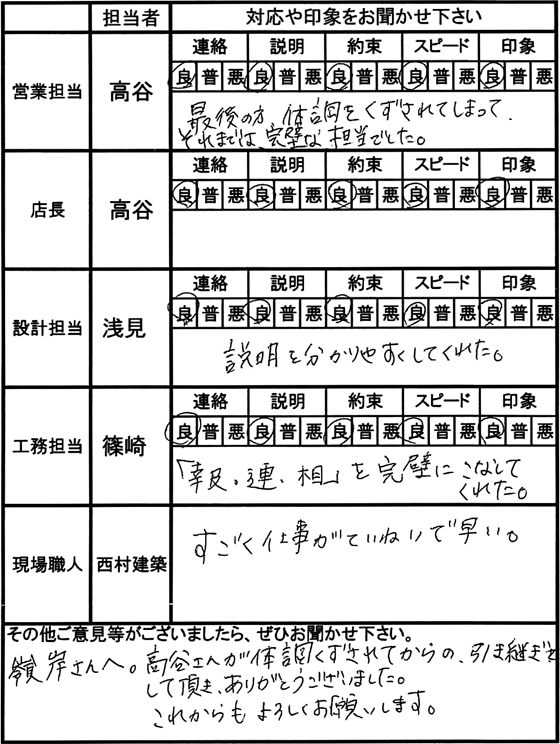 担当者 対応や印象をお聞かせ下さい
営業担当 高谷
連絡 説明 約束 スピード 印象
良 普 悪 良 普 悪 良 普 悪 良 普 悪 良 普 悪
最後の方、体調をくずされてしまって、
それまでは、完璧な担当でした。
店長 高谷
連絡 説明 約束 スピード 印象
良 普 悪 良 普 悪 良 普 悪 良 普 悪 良 普 悪
設計担当 浅見
連絡 説明 約束 スピード 印象
良 普 悪 良 普 悪 良 普 悪 良 普 悪 良 普 悪
説明を分かりやすくしてくれた。
工務担当 篠崎
連絡 説明 約束 スピード 印象
良 普 悪 良 普 悪 良 普 悪 良 普 悪 良 普 悪
「報。連、相」を完璧にこなして
くれた。
現場職人 西村建築
すごく仕事がていねいで早い。
その他ご意見等がございましたら、ぜひお聞かせ下さい。
嶺岸さんへ。高谷さんが体調くずされてからの、引き継ぎを
して頂き、ありがとうございました。
これからもよろしくお願いします。